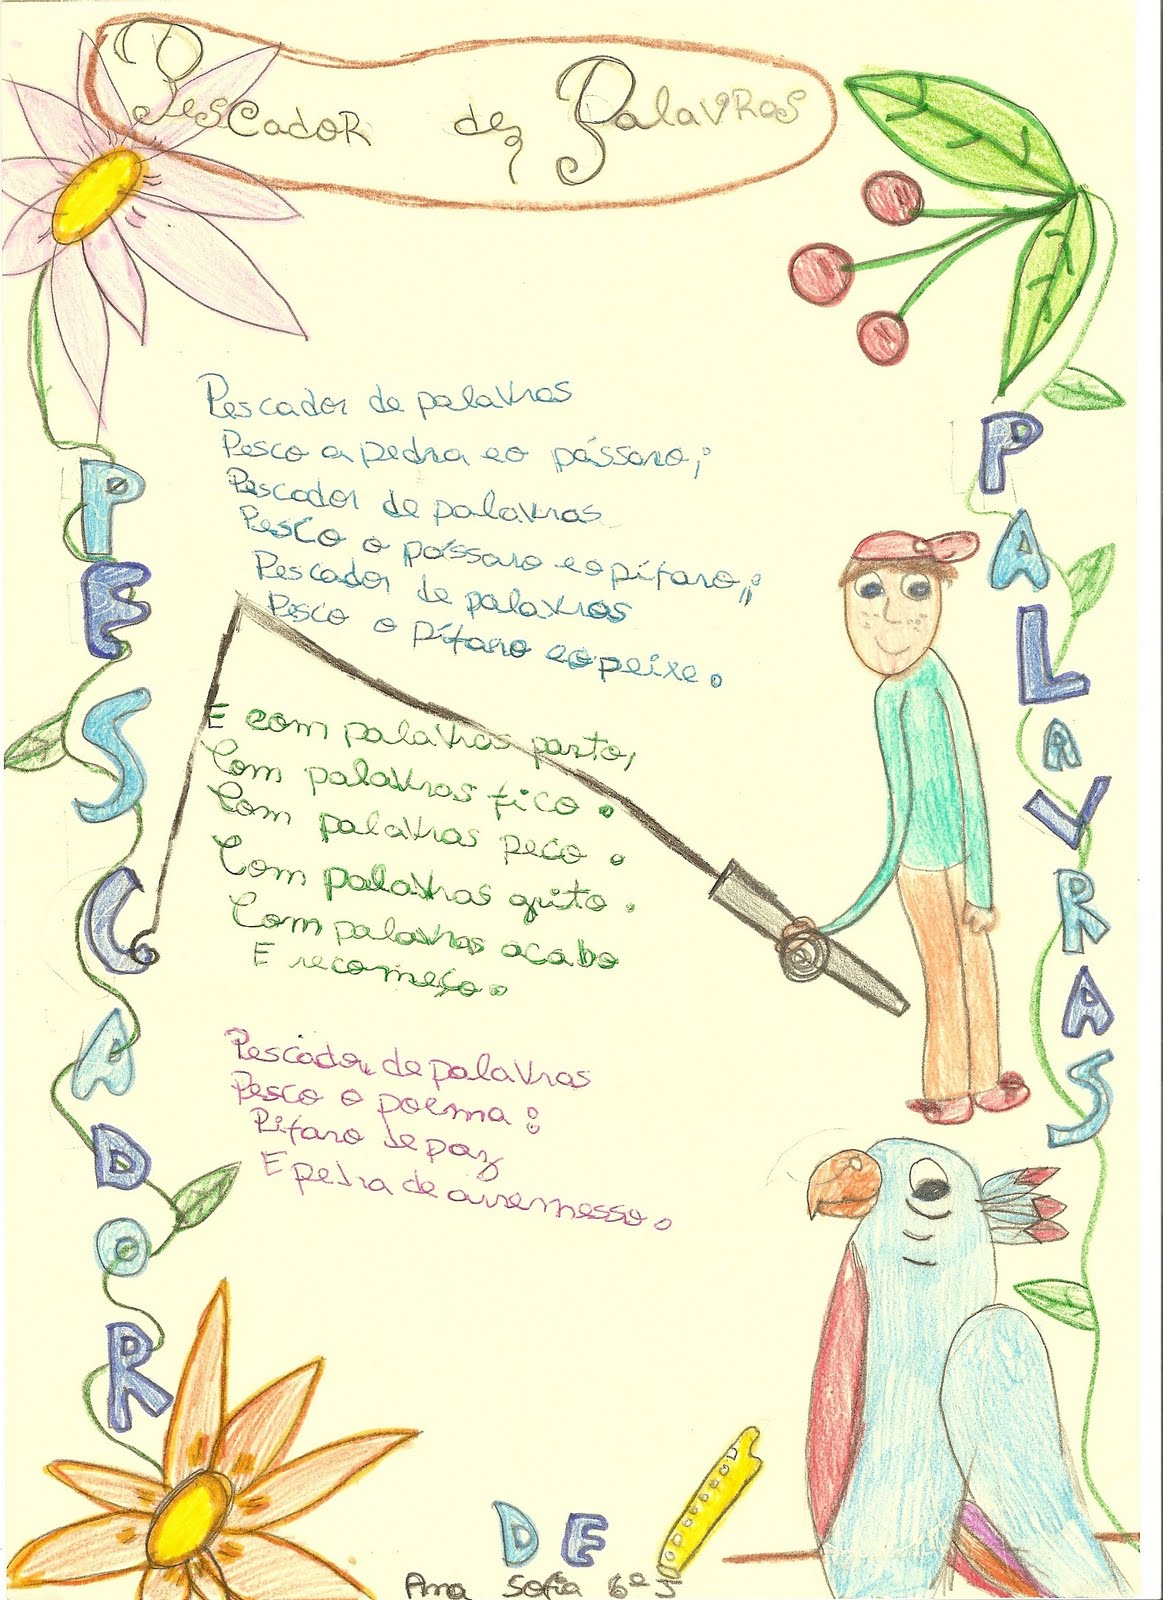 Pescador de Palavras
Pescador de palavras
Pesco a pedra e o pássaro;
Pescador de palavras
Pesco o pássaro e o pífaro;
Pescador de palavras
Pesco o pífaro e o peixe.
E com palavras parto,
Com palavras fico.
Com palavras peco.
Com palavras grito.
Com palavras acabo
E recomeço.
Pescador de palavras
Pesco o poema:
Pífaro de paz
E pedra de arremesso.
PESCADOR
PALAVRAS
DE
Ana Sofia 6º J